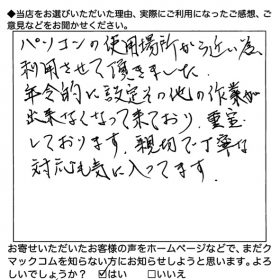 ◆当店をお選びいただいた理由、実際にご利用になったご感想、ご
意見などをお聞かせください。
パソコンの使用場所から近い為、
利用させて頂きました。
年令的に設定その他の作業が
出来なくなって来ており、重宝
しております。親切で丁寧な
対応も気に入ってます。
お寄せいただいたお客様の声をホームページなどで、まだク
マックコムを知らない方にお知らせしようと思います。よろ
しいでしょうか？ ☑はい □いいえ